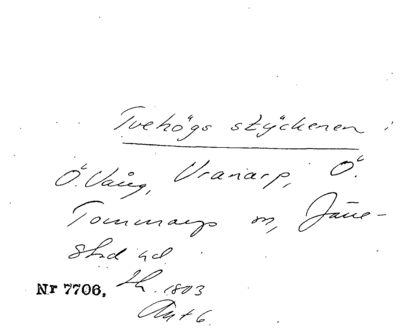 Tvehögs styckenen :
Ö. Vång, Vranarp, Ö.
Tommarps sn, Järre-
stad hd
Nr 7706, Sk. 1803
Akt 6.